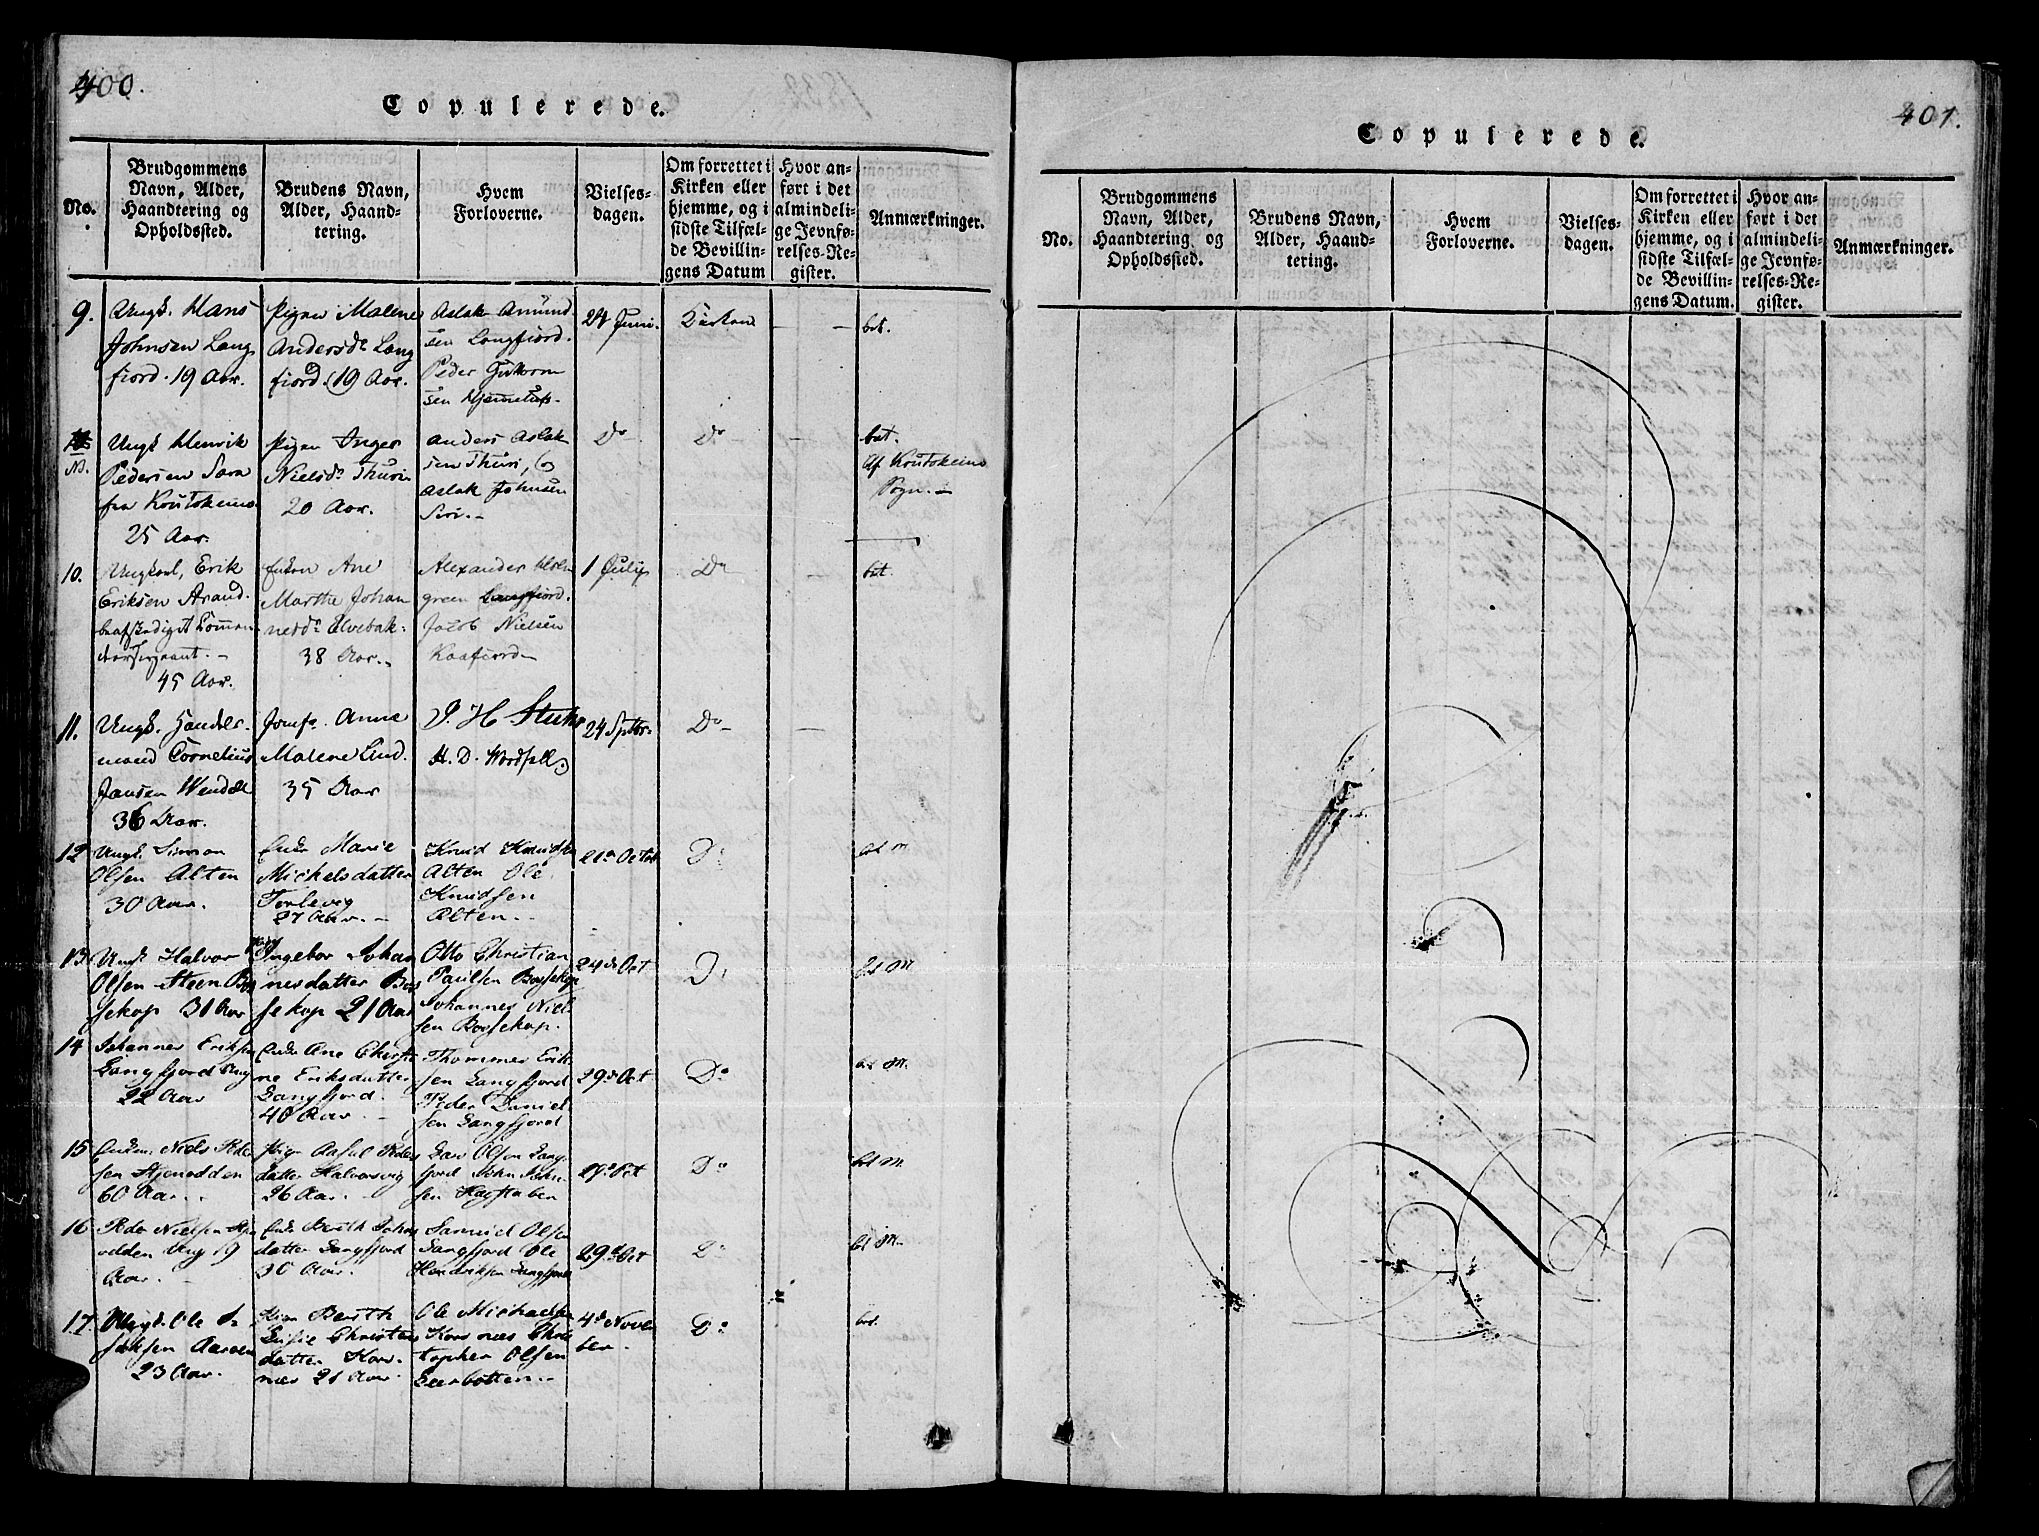 400.
Copulerede.
No.
Brudgommens Navn, Alder, Haandtering og Opholdssted.
Brudens Navn, Alder, Haandtering.
Hvem Forloverne.
Vielses-dagen.
Om forrettet i Kirken eller hjemme, og i sidste Tilfælde Bevillingens Datum
Hvor anført i det almindelige Jevnførelses-Register.
Anmærkninger.
9.
Ungk. Hans
Johnsen Lang
fiord. 19 Aar.
Pigen Malene
Andersdr Lang
fiord. (19 Aar.
Aslak Amund
sen Langfiord.
Peder
sen
24 Juni.
Kirken
bet.
NB.
Ungk Henrik
Pedersen Sara
fra Koutokeino
25 Aar.
Pigen Inger
Nielsdr Thuri
20 Aar.
Anders Aslak
sen Thuri, og
Aslak Johnsen
Siri.-
Do
Do
bet.
Af Koutokeino
Sogn.-
10.
Ungkarl, Erik
Eriksen Strand.
beafskediget
45 Aar.
Enken Ane
Marthe Johan
nesdr Elvebak.
38 Aar.
Alexander
green Langfiord.
Jacob Nielsen
Kaafiord
1 Julij
Do
bet.
11.
Ungk. Handels
mand Cornelius
Jansen Wendel
36 Aar.
Jomfr. Anne
Malene Lund.
35 Aar
J. H.
H. D.
24 Sptbr.
Do
12
Ungk. Simon
Olsen Alten
30 Aar.
Enke Marie
Michelsdatter
Torlevig
27 Aar.
Knud Knudsen
Alten Ole
Knudsen
Alten.
21de Octob
Do
13
Ungk Halvor
Olsen Steen Bos
sekop 31 Aar
Ingebor Johan
nesdatter Bos
sekop 21 Aar
Otto Christian
Paulsen Bossekop
Johannes Niel
sen Bossekop.
24de Oct
Do
14
Johannes Eriksen
Langfjord Ung
22 Aar
Enke Ane Chersti
ne Eriksdatter
Langfjord.
40 Aar.
Thommes Erik
sen Langfjord
Peder Daniel
sen Langfjord
29de Oct
Do
bet M.
15
Enkem. Niels Peder
sen
60 Aar.
Pige Peders
datter Halvorsvig
26 Aar.
Lars Olsen Lang
fjord John John
sen
29de Oct
Do
bet M.
16
Peder Nielsen
Ung 19
Aar.
Enke Berith Johns
datter Langfjord
30 Aar.
Samuel Olsen
Langfjord Ole
Hendriksen Langfjord
29de Oct
Do
bet M.
17.
Ungk. Ole
23 Aar.
Pigen Berith
Christens
datter Kors
nes 21 Aar.
Ole Michaelsen
Korsnæs Chris
topher Olsen
Leerbotten.
4de Novem
ber.
Do
bet.
401.
Copulerede.
No.
Brudgommens Navn, Alder, Haandtering og Opholdssted.
Brudens Navn, Alder, Haandtering.
Hvem Forloverne.
Vielses-dagen.
Om forrettet i Kirken eller hjemme, og i sidste Tilfælde Bevillingens Datum.
Hvor anført i det almindelige Jevnførelses-Register.
Anmærkninger.